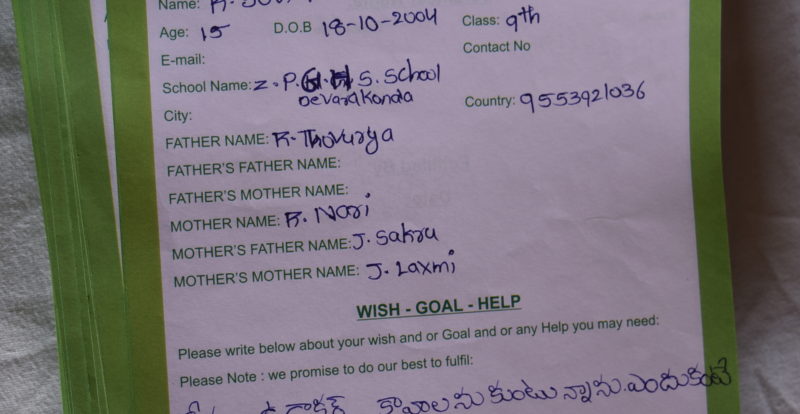 Name: R.
Age: 15 D.O.B 18-10-2004 Class: 9th
E-mail: Contact No
School Name: Z.P.H.H.S. School
Devarakonda
City: Country: 9553921036
FATHER NAME: R. Thovurya
FATHER'S FATHER NAME:
FATHER'S MOTHER NAME:
MOTHER NAME: R. Nori
MOTHER'S FATHER NAME: J. Sakru
MOTHER'S MOTHER NAME: J. Laxmi
WISH - GOAL - HELP
Please write below about your wish and or Goal and or any Help you may need:
Please Note : we promise to do our best to fulfil:
కావాలనుకుంటున్నాను. ఎందుకంటే